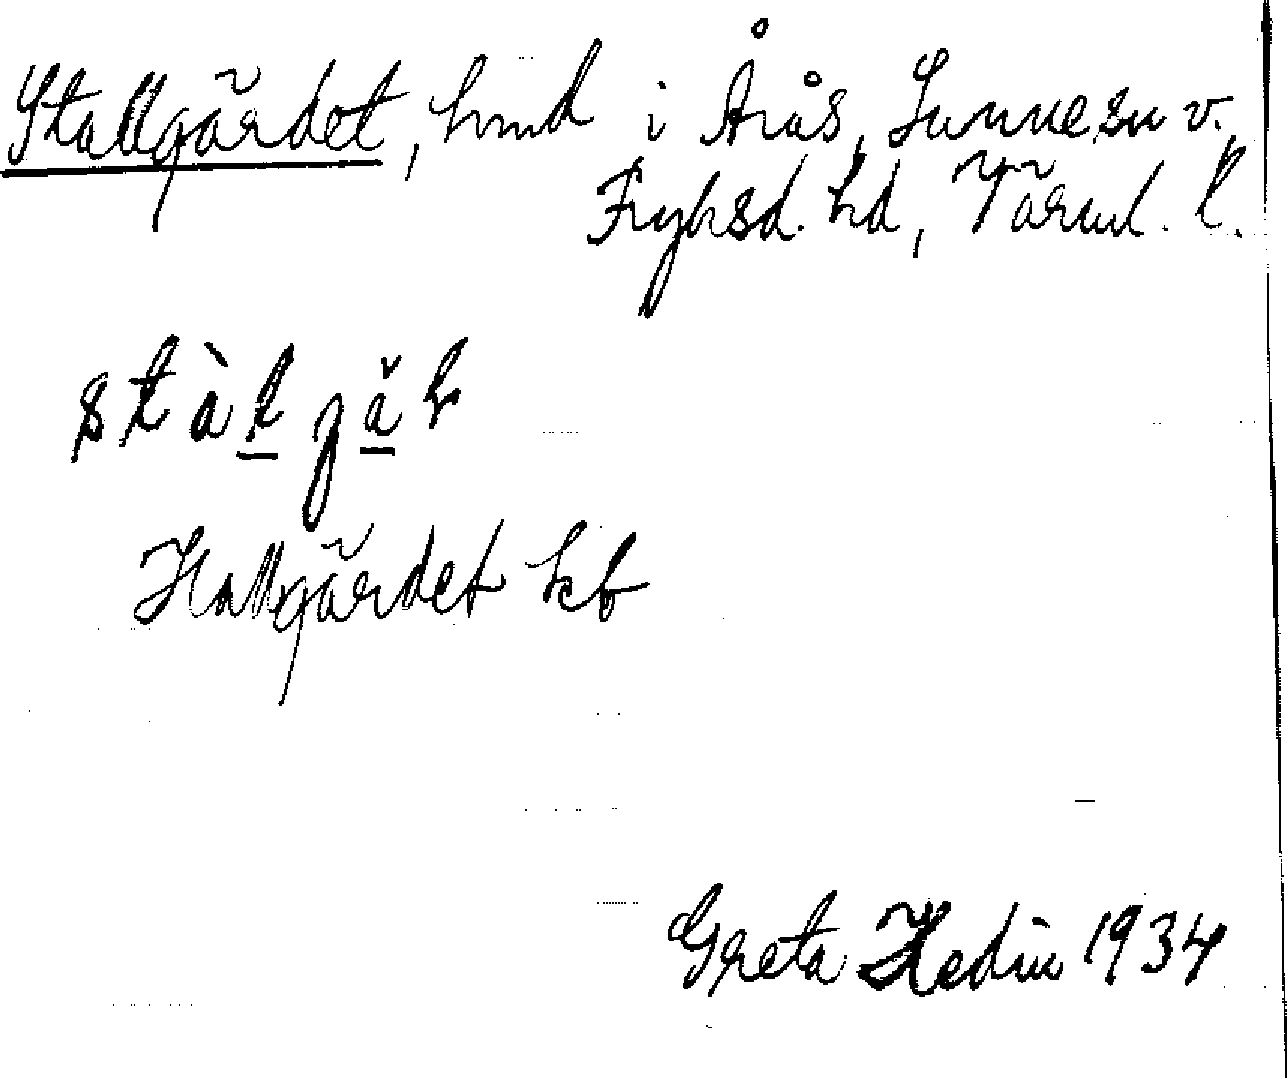 Stallgärdet, hmd i Årås, Sunne sn v.
Fryksd. hd, Värml. l.
stàl jä̌h
Hallgärdet kb
Greta Hedin 1934